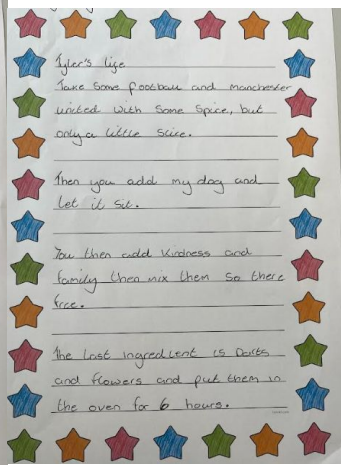 Tyler's life
Take some football and Manchester
united with some spice, but
only a little slice.
Then you add my dog and
let it sit.
You then add kindness and
family then mix them so there
free.
The last ingredient is Darts
and flowers and put them in
the oven for 6 hours.